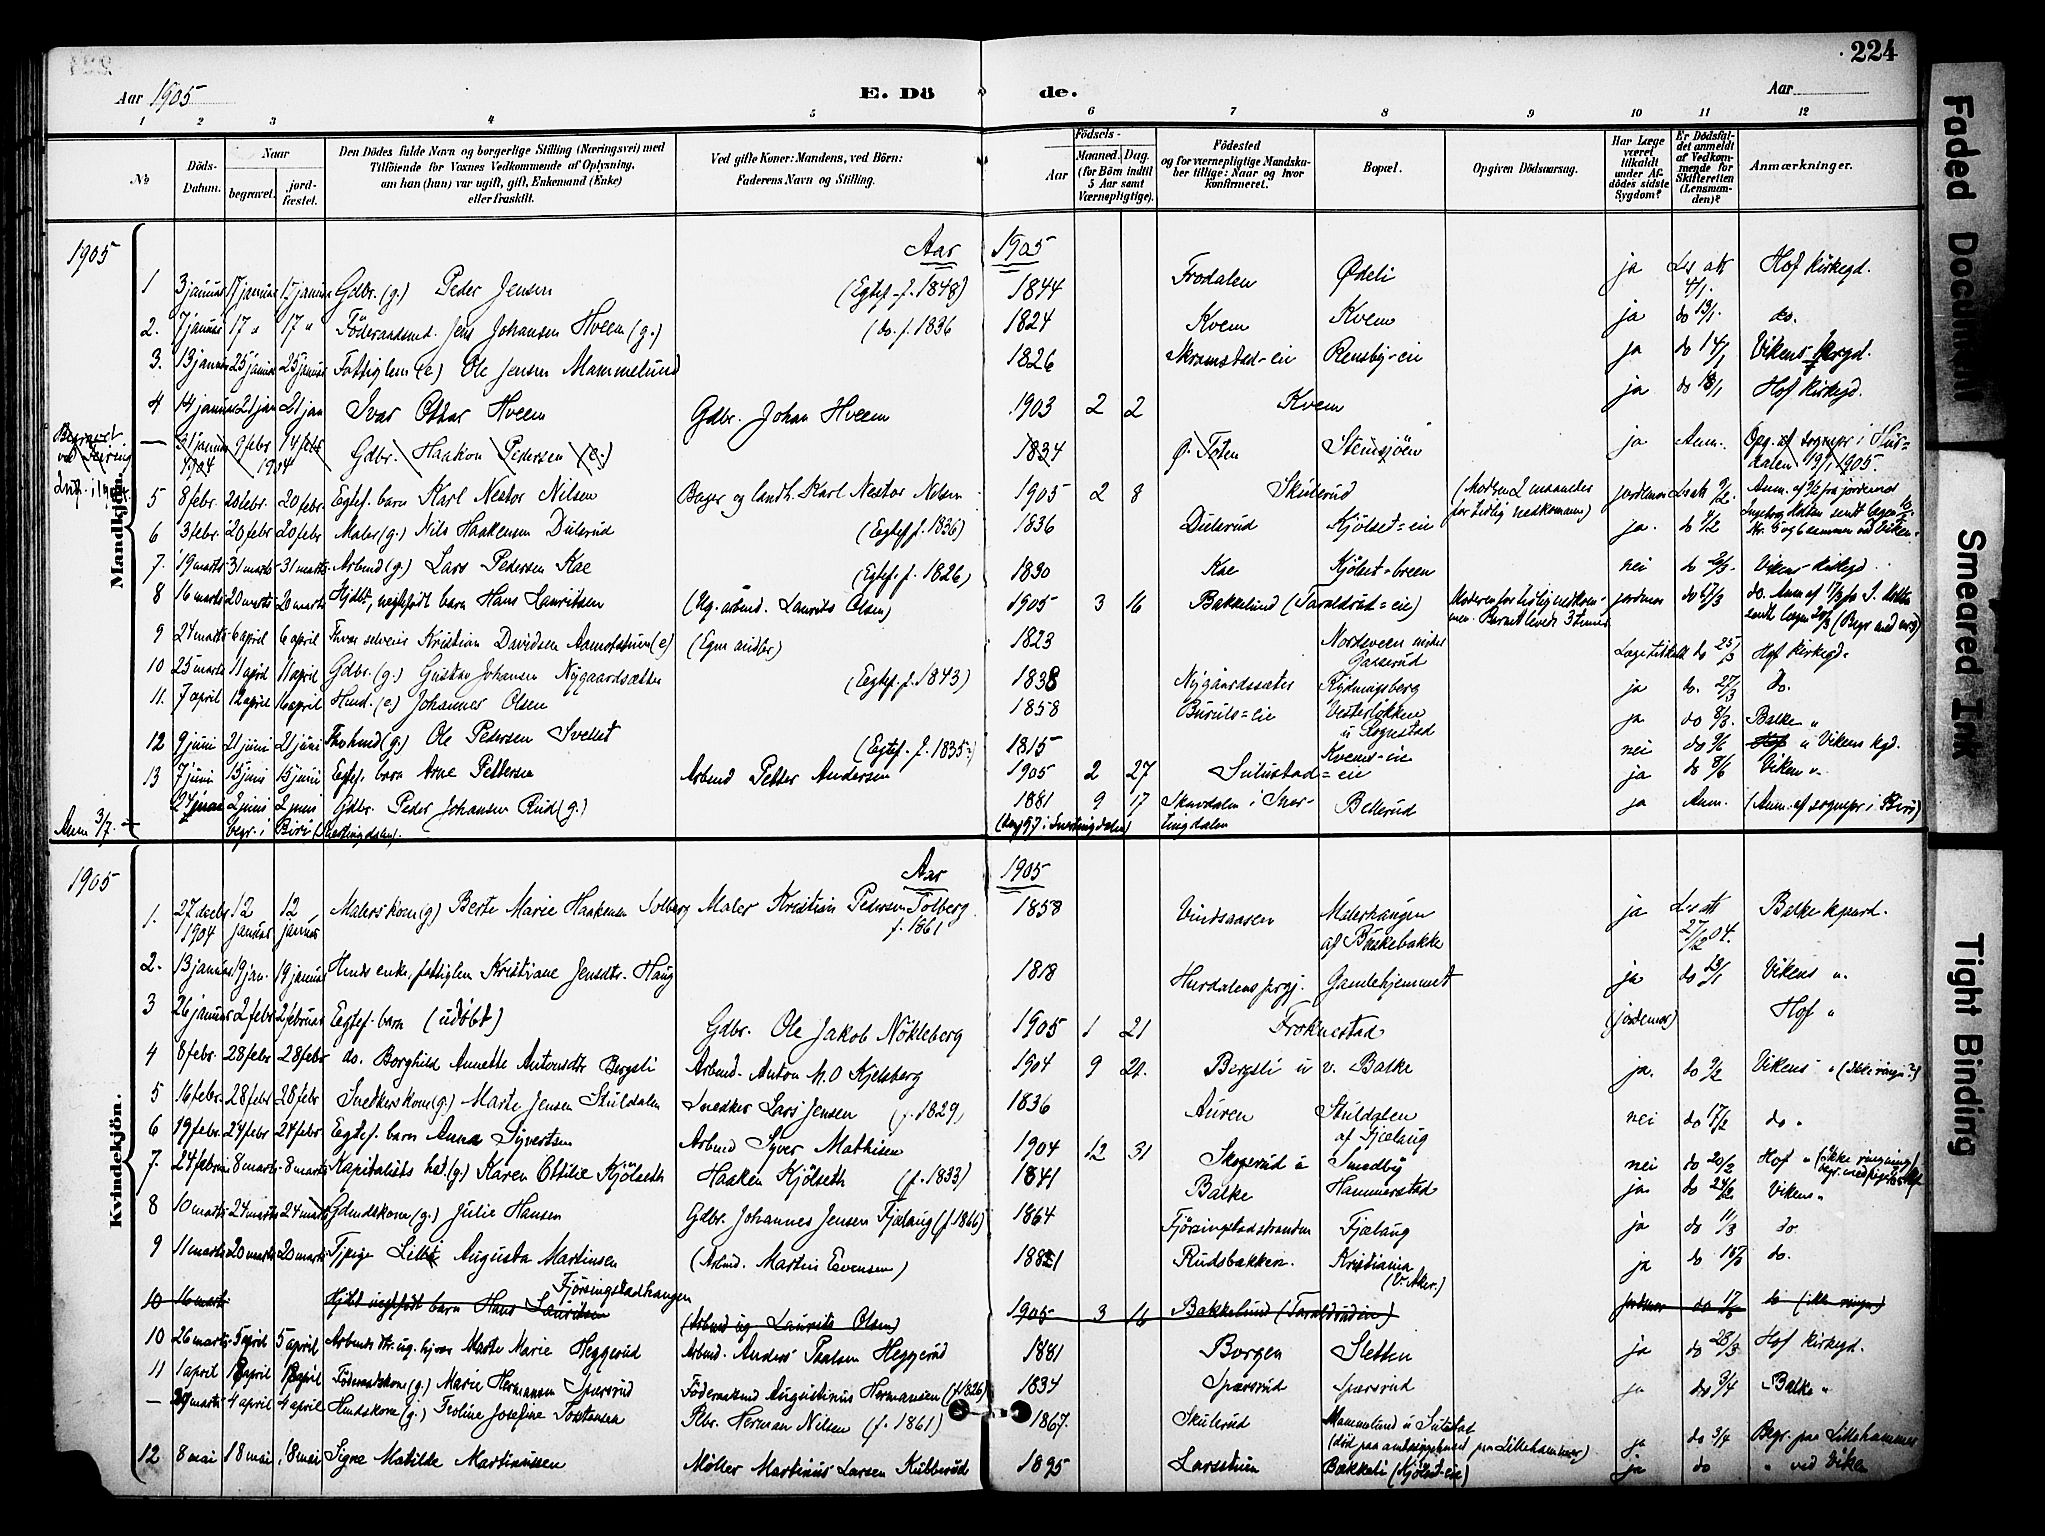 224
Aar 1905
E. Dö
de.
Aar
1 2 3 4 5 6 7 8 9 10 11 12
No
Döds-Datum.
Naar
begravet.
jord-fæstet.
Den Dödes fulde Navn og borgerlige Stilling (Næringsvei) med
Tilföiende for Voxnes Vedkommende af Oplysning,
om han (hun) var ugift, gift, Enkemand (Enke)
eller fraskilt.
Ved gifte Koner: Mandens, ved Börn:
Faderens Navn og Stilling.
Födsels-
Aar
Maaned. Dag.
(for Börn indtil
5 Aar samt
Værnepligtige).
Födested
og for værnepligtige Mandsku-
ber tillige: Naar og hvor
konfirmeret.
Bopæl.
Opgiven Dödsaarsag.
Har Læge
været
tilkaldt
under Af-
dödes sidste
Sygdom?
Er Dödsfal-
det anmeldt
af Vedkom-
mende for
Skifteretten
(Lensman-
den)?
Anmærkninger.
1905 Aar 1905
Mandkjön.
1 3 januar 17 januar 17 januar Gdbr. (g.) Peder Jensen (Egtef. f. 1848) 1844 Frodalen Ødeli ja Les att 4/1. Hof kirkegd.
2. 7 januar 17 " 17 " Föderaadsmd. Jens Johansen Hveem (g.) (do. f. 1836 1824 Kvem Kvem ja do 13/1. do.
3. 13 januar 25 januar 25 januar Fattiglem (e) Ole Jensen Mammelund 1826 Skramstad-eie Rensby-eie ja do 14/1 Vikens kirkegd.
4 14 januar 21 jan 21 jan Ivar Ottar Hveem Gdbr. Johan Hveem 1903 2 2 Kvem ja do 18/1 Hof kirkegd.
Begravet ved Feiring
— 31 januar 1904 9 febr 14 febr 1904 Gdbr. Haakon Pedersen (e.) 1834 Ø. Toten Steinsjöen ja Anm. Opg. af sognepr i Hur-
dalen 19/1 1905.
5 8 febr. 20 febr. 20 febr Egtef. barn Karl Nestor Nilsen Bager og landh. Karl Nestor Nilsen 1905 2 8 Skulerud (Moderen 2 maaneder
for tidlig nedkommen) jordemor Les att 9/2.
6 3 febr. 20 febr 20 febr Maler (g.) Nils Haakensen Dulerud (Egtef. f. 1836) 1836 Dulerud Kjölset-eie ja. do 4/2 Nr. 5 og 6 sammen ved Viken.
7. 19 marts 31 marts 31 marts Arbmd (g.) Lars Pedersen Kae (Egtef. f. 1826) 1830 Kae Kjölset-breen nei do Vikens kirkegd
8 16 marts 20 marts 20 marts Hjdbt, uegtefödt barn Hans Lauritsen (Ug. arbmd. Laurits Olsen) 1905 3 16 Bakkelund (Taraldrud-eie) Moderen for tidlig nedkom-
men. Barnet levede 3 timer jordemor do 17/3
9 24 marts 6 april 6 april Kristian Davidsen (e) 1823 Nordsveen 25/3 Hof kirkegd.
10 25 marts 11 april 11 april Gdbr. (g.) Gustav Johansen Nygaardsæter (Egtef. f. 1843) 1838 Nygaardssæter Rydningsberg ja do. 27/3 do.
11. 7 april 12 april 16 april Husmd. (e) Johannes Olsen 1858 Buruls-eie Vesterlökken
u Sognstad ja do 8/3. Balke "
12 9 juni 21 juni 21 juni (g.) Ole Pedersen Svelset (Egtef. f. 1835-) 1815 Kvems-eie nei do 9/6 Hof u Vikens kgd.
13 7 juni 15 juni 15 juni Egtef. barn Arne Pettersen Arbmd Petter Andersen 1905 2 27 Sulustad-eie ja do 8/6 Viken "
Anm 3/7. — 24 2 juni 2 juni Gdbr. Peder Johansen Rud (g.) 1881 9 17 Skardalen i Sner-
tingdalen Bellerud ja Anm. (Anm. af sognepr i Biri)
begr. i Biri (Snertingdalen).
1905 Aar 1905
Kvindekjön.
1. 27 decb 1904 12 januar 12 januar Malers kone (g) Berte Marie Haakensen Tolberg Maler Kristian Pedersen Tolberg
f. 1861 1858 Vindsaasen Malerhaugen
af Bakkebakke ja Les att
27/12 04. Balke kgaard.
2. 13 januar 19 jan. 19 januar Husmds enke, fattiglem Kristiane Jensdtr. Haug 1818 Hurdalens prgj. Gamlehjemmet ja do 13/1 Vikens ".
3 26 januar 2 febr. 2 februar Egtef. barn (udöbt) Gdbr. Ole Jakob Nökleberg 1905 1 21 Froknestad (jordemor) Hof "
4 8 febr. 28 febr 28 febr do. Borghild Annette Antonsdtr Bergsli Arbmd. Anton M. O Kjelsberg 1904 9 21. Bergsli u v. Balke ja. do 9/2 Vikens " (ikke ringn.?)
5 16 febr. 28 febr 28 febr Snedkers kone (g.) Marte Jensen Stuldalen Snedker Lars Jensen (f. 1829) 1836 Auren Stuldalen
af Fjælaug nei do 17/2 do "
6 19 febr. 24 febr 24 febr. Egtef. barn Anna Syvertsen Arbmd Syver Mathisen 1904 12 31 Skogerud u Smedby nei do 20/2 Hof " (ikke ringning
7. 24 februar 8 marts 8 marts Kapitalists hst. (g.) Karen Ottilie Kjölseth Haaken Kjölseth (f. 1833) 1841 Balke Hammerstad ja do 24/2 Vikens "
8 10 marts 24 marts 24 marts Gdmdskone (g.) Julie Hansen Gdbr. Johannes Jensen Fjælaug (f 1866) 1864 Fjörsingstadstranden Fjælaug ja do 11/3 do
9 11 marts 20 marts 20 marts Tjpige Lilli Augusta Martinsen
Fjörsingstadhaugen (Arbmd. Martin Evensen) 1881 Rudsbakken. Kristiania
(V. Aker.) ja do 10/3 do.
10 16 marts Hjdbt uegtefödt barn Hans Lauritsen (Arbmd ug. Laurits Olsen) 1905 3 16 Bakkelund (Taraldrudeie) jordemor do 17/3 do (ikke ringn.)
10 26 marts 5 april 5 april Arbmds dtr. ug. hjvær. Marte Marie Heggerud Arbmd. Anders Paulsen Heggerud 1881 Borgen Sletten ja do 28/3 Hof kirkegd.
11 1 april 18 april 18 april Föderaadskone (g.) Marie Hermansen Sparsrud Föderaadsmd Augustinus Hermansen (f 1826) 1834 Sparsrud Sparsrud ja do 3/4 Balke "
— 29 marts 4 april 4 april Husmdskone (g.) Froline Josefine Torstensen Pbr. Herman Nilsen (f. 1861) 1867. Skulerud Mammelund u Sulustad
(död paa amtssygehuset paa Lillehammer) ja do 3/4 Begr. paa Lillehammer
12 8 mai 18 mai 18 mai Signe Matilde Martinussen Möller Martinus Larsen Kubberud 1895 Larsstuen Bakkeli (Kjölset-eie) ja do " ved Viken
Faded Document
Smeared Ink
Tight Binding